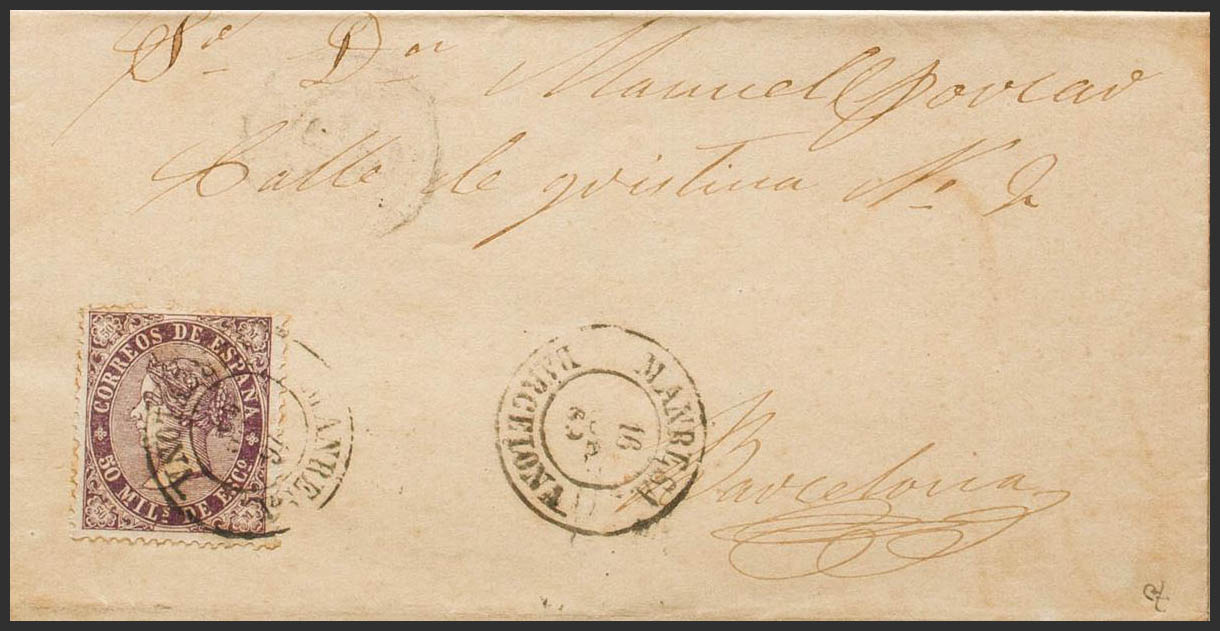 Sr. Dn Manuel
Calle de Cristina No. 2
CORREOS DE ESPAÑA
50 MILs DE ESCo
MANRESA
BARCELONA
16
Barcelona